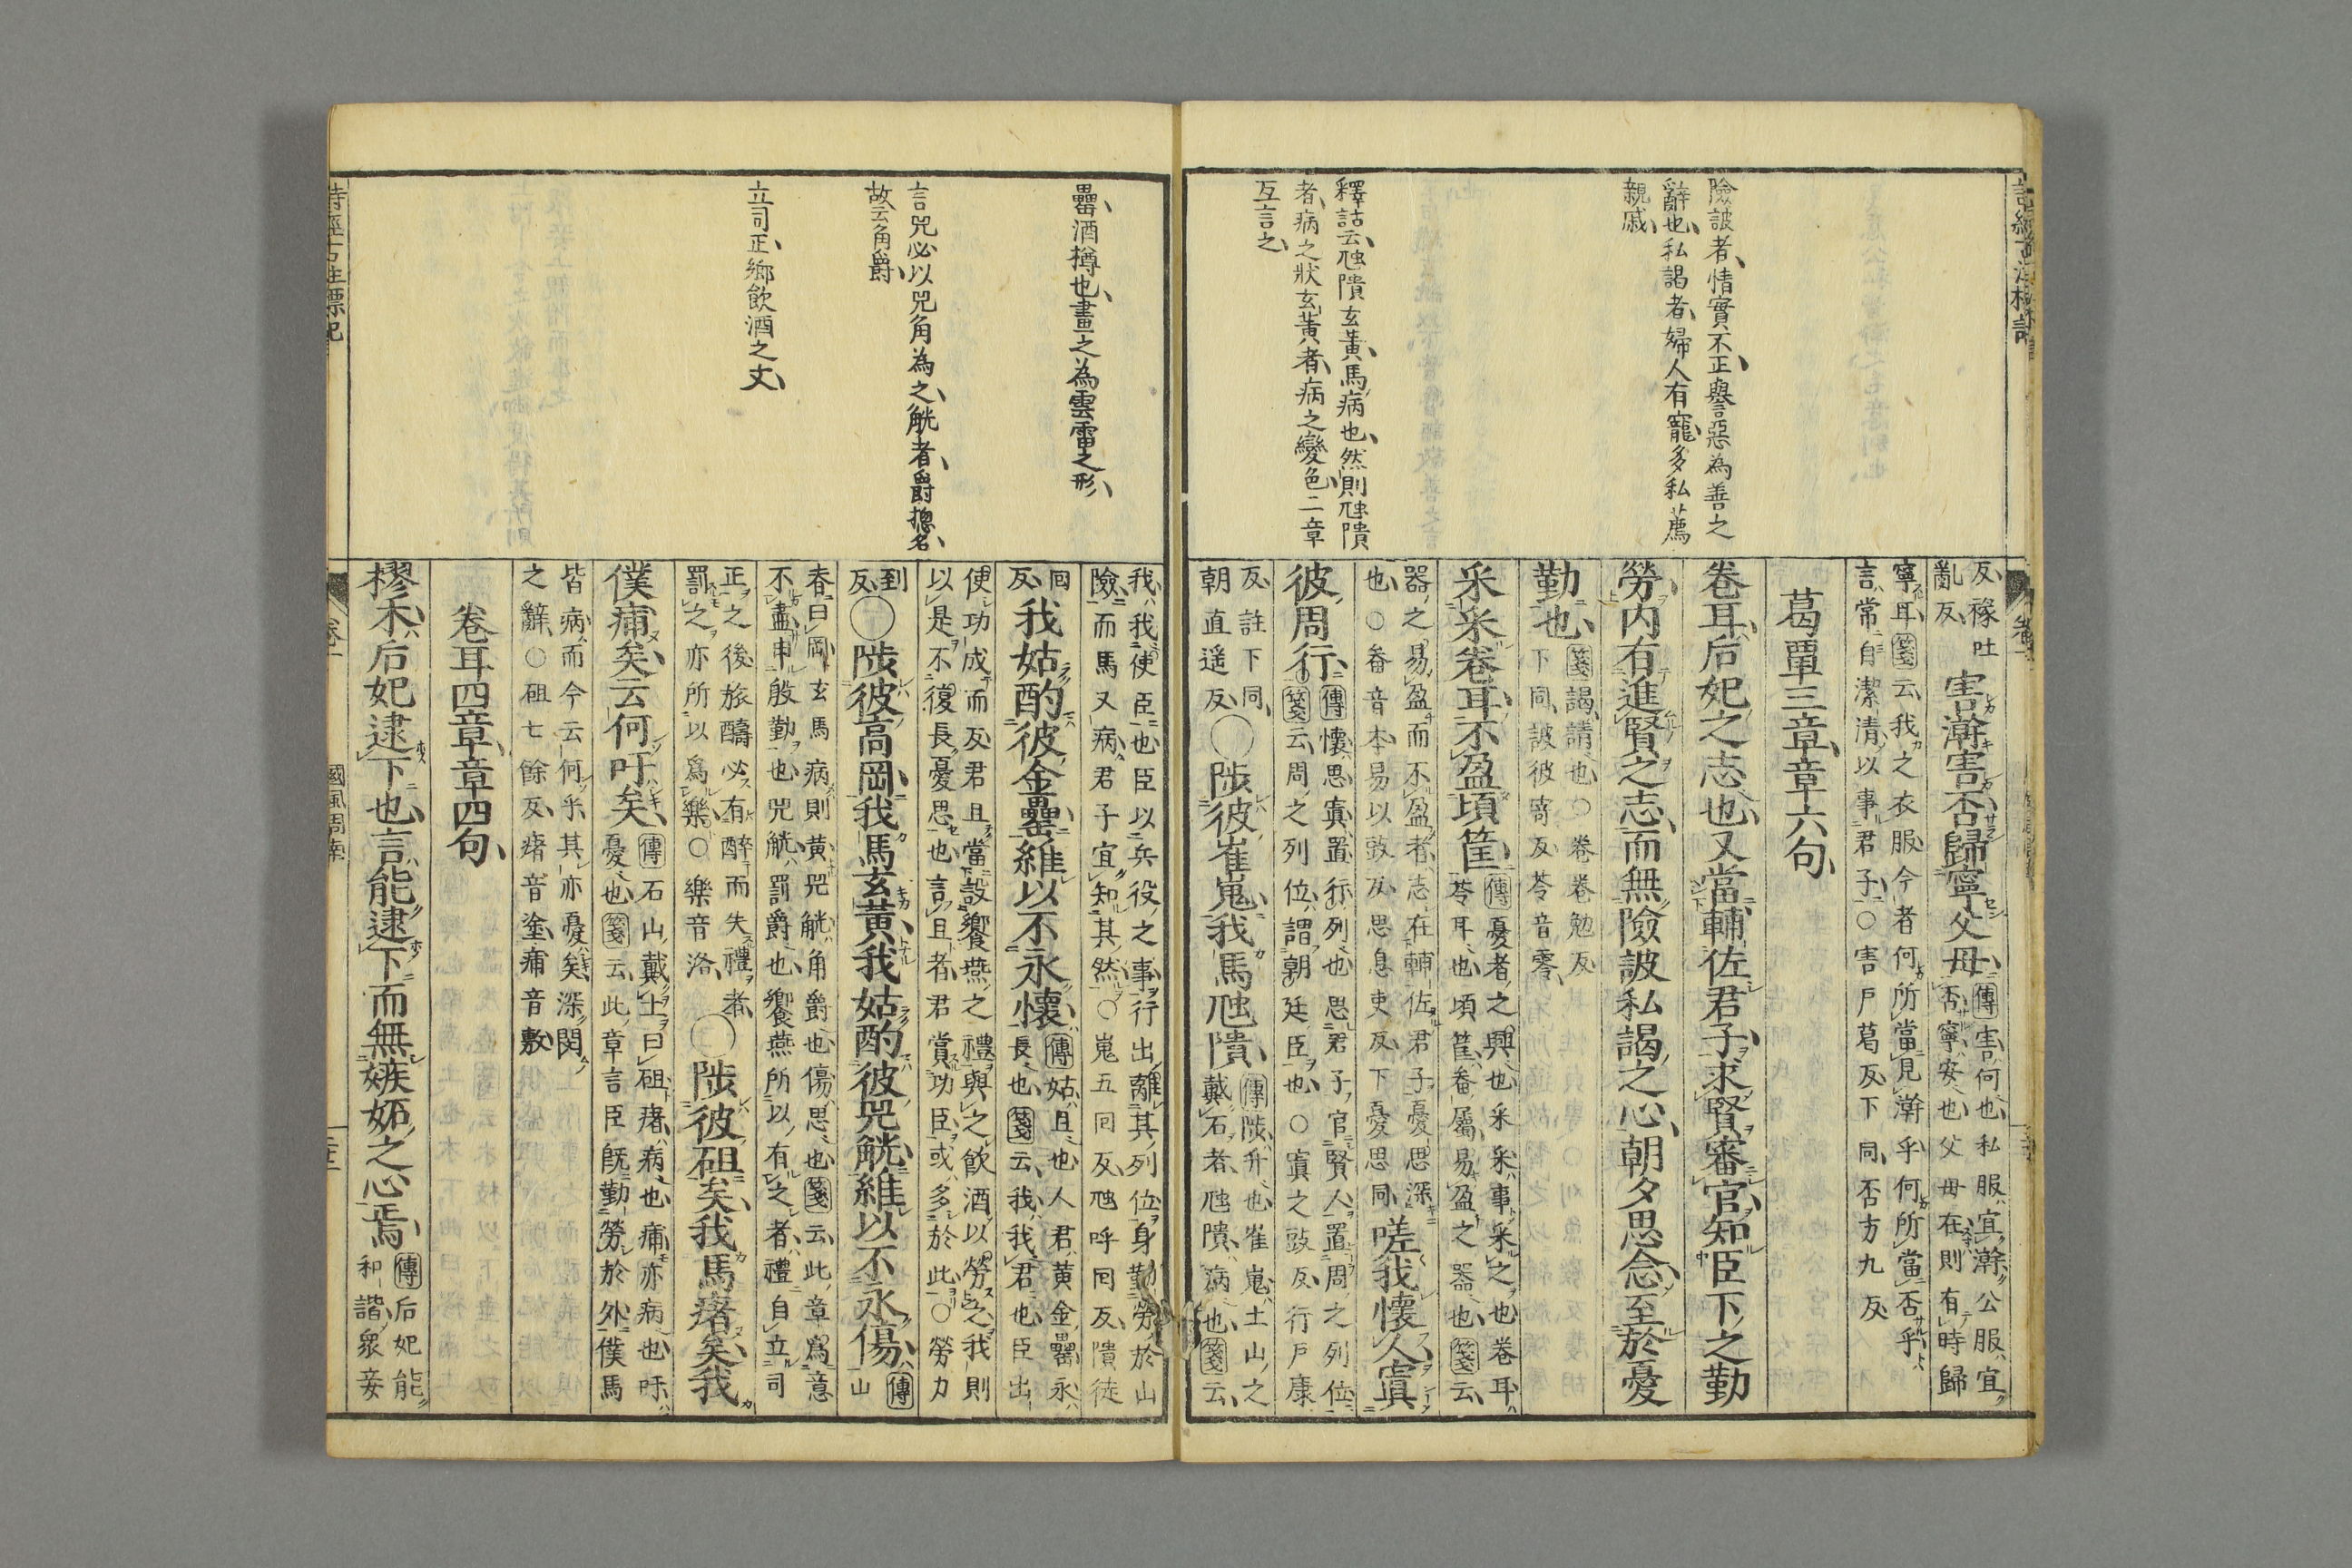 險詖者情實不正譽惡為善之
辭也私謁者婦人有寵多私薦
親戚
釋詁云虺隤玄黄馬病也然則虺隤
者病之狀玄黄者病之變色二章
互言之
反 豫吐
亂反
害澣害否歸寧父母
傳害何也私服宜澣公服宜
否寧安也父母在則有時歸
寧耳箋云我之衣服今者何所當見澣乎何所當否乎
言常自潔清以事君子○害戸葛反下同否方九反
葛覃三章章六句
卷耳后妃之志也又當輔佐君子求賢審官知臣下之勤
勞内有進賢之志而無險詖私謁之心朝夕思念至於憂
勤也
箋謁請也○卷卷勉反
下同詖彼寄反苓音零
采采卷耳不盈頃筐
傳憂者之興也采采事采之也卷耳
苓耳也頃筐畚屬易盈之器也箋云
器之易盈而不盈者志在輔佐君子憂思深
也○畚音本易以豉反思息吏反下憂思同
嗟我懷人寘
彼周行
傳懷思寘置行列也思君子官賢人置周之列位
箋云周之列位謂朝廷臣也○寘之豉反行戸康
反註下同
朝直遥反
○陟彼崔嵬我馬虺隤
傳陟升也崔嵬土山之
戴石者虺隤病也箋云
罍酒樽也畫之為雲雷之形
言兕必以兕角為之觥者爵揔名
故云角爵
立司正郷飲酒之丈
我我使臣也臣以兵役之事行出離其列位身勤勞於山
險而馬又病君子宜知其然○嵬五回反虺呼回反隤徒
回
反
我姑酌彼金罍維以不永懷
傳姑且也人君黄金罍永
長也箋云我我君也臣出
使功成而反君且當設饗燕之禮與之飲酒以勞之我則
以是不復長憂思也言且者君賞功臣或多於此○勞力
到
反
○陟彼高岡我馬玄黄我姑酌彼兕觥維以不永傷
傳
山
春曰岡玄馬病則黄兕觥角爵也傷思也箋云此章爲意
不盡申殷勤也兕觥罰爵也饗燕所以有之者禮自立司
正之後旅酬必有醉而失禮者
罰之亦所以爲樂○樂音洛
○陟彼砠矣我馬瘏矣我
僕痡矣云何吁矣
傳石山戴土曰砠瘏病也痡亦病也吁
憂也箋云此章言臣旣勤勞於外僕馬
皆病而今云何乎其亦憂矣深閔
之辭○砠七餘反瘏音塗痡音敷
卷耳四章章四句
樛木后妃逮下也言能逮下而無嫉妬之心焉
傳后妃能
和諧衆妾
國風周南